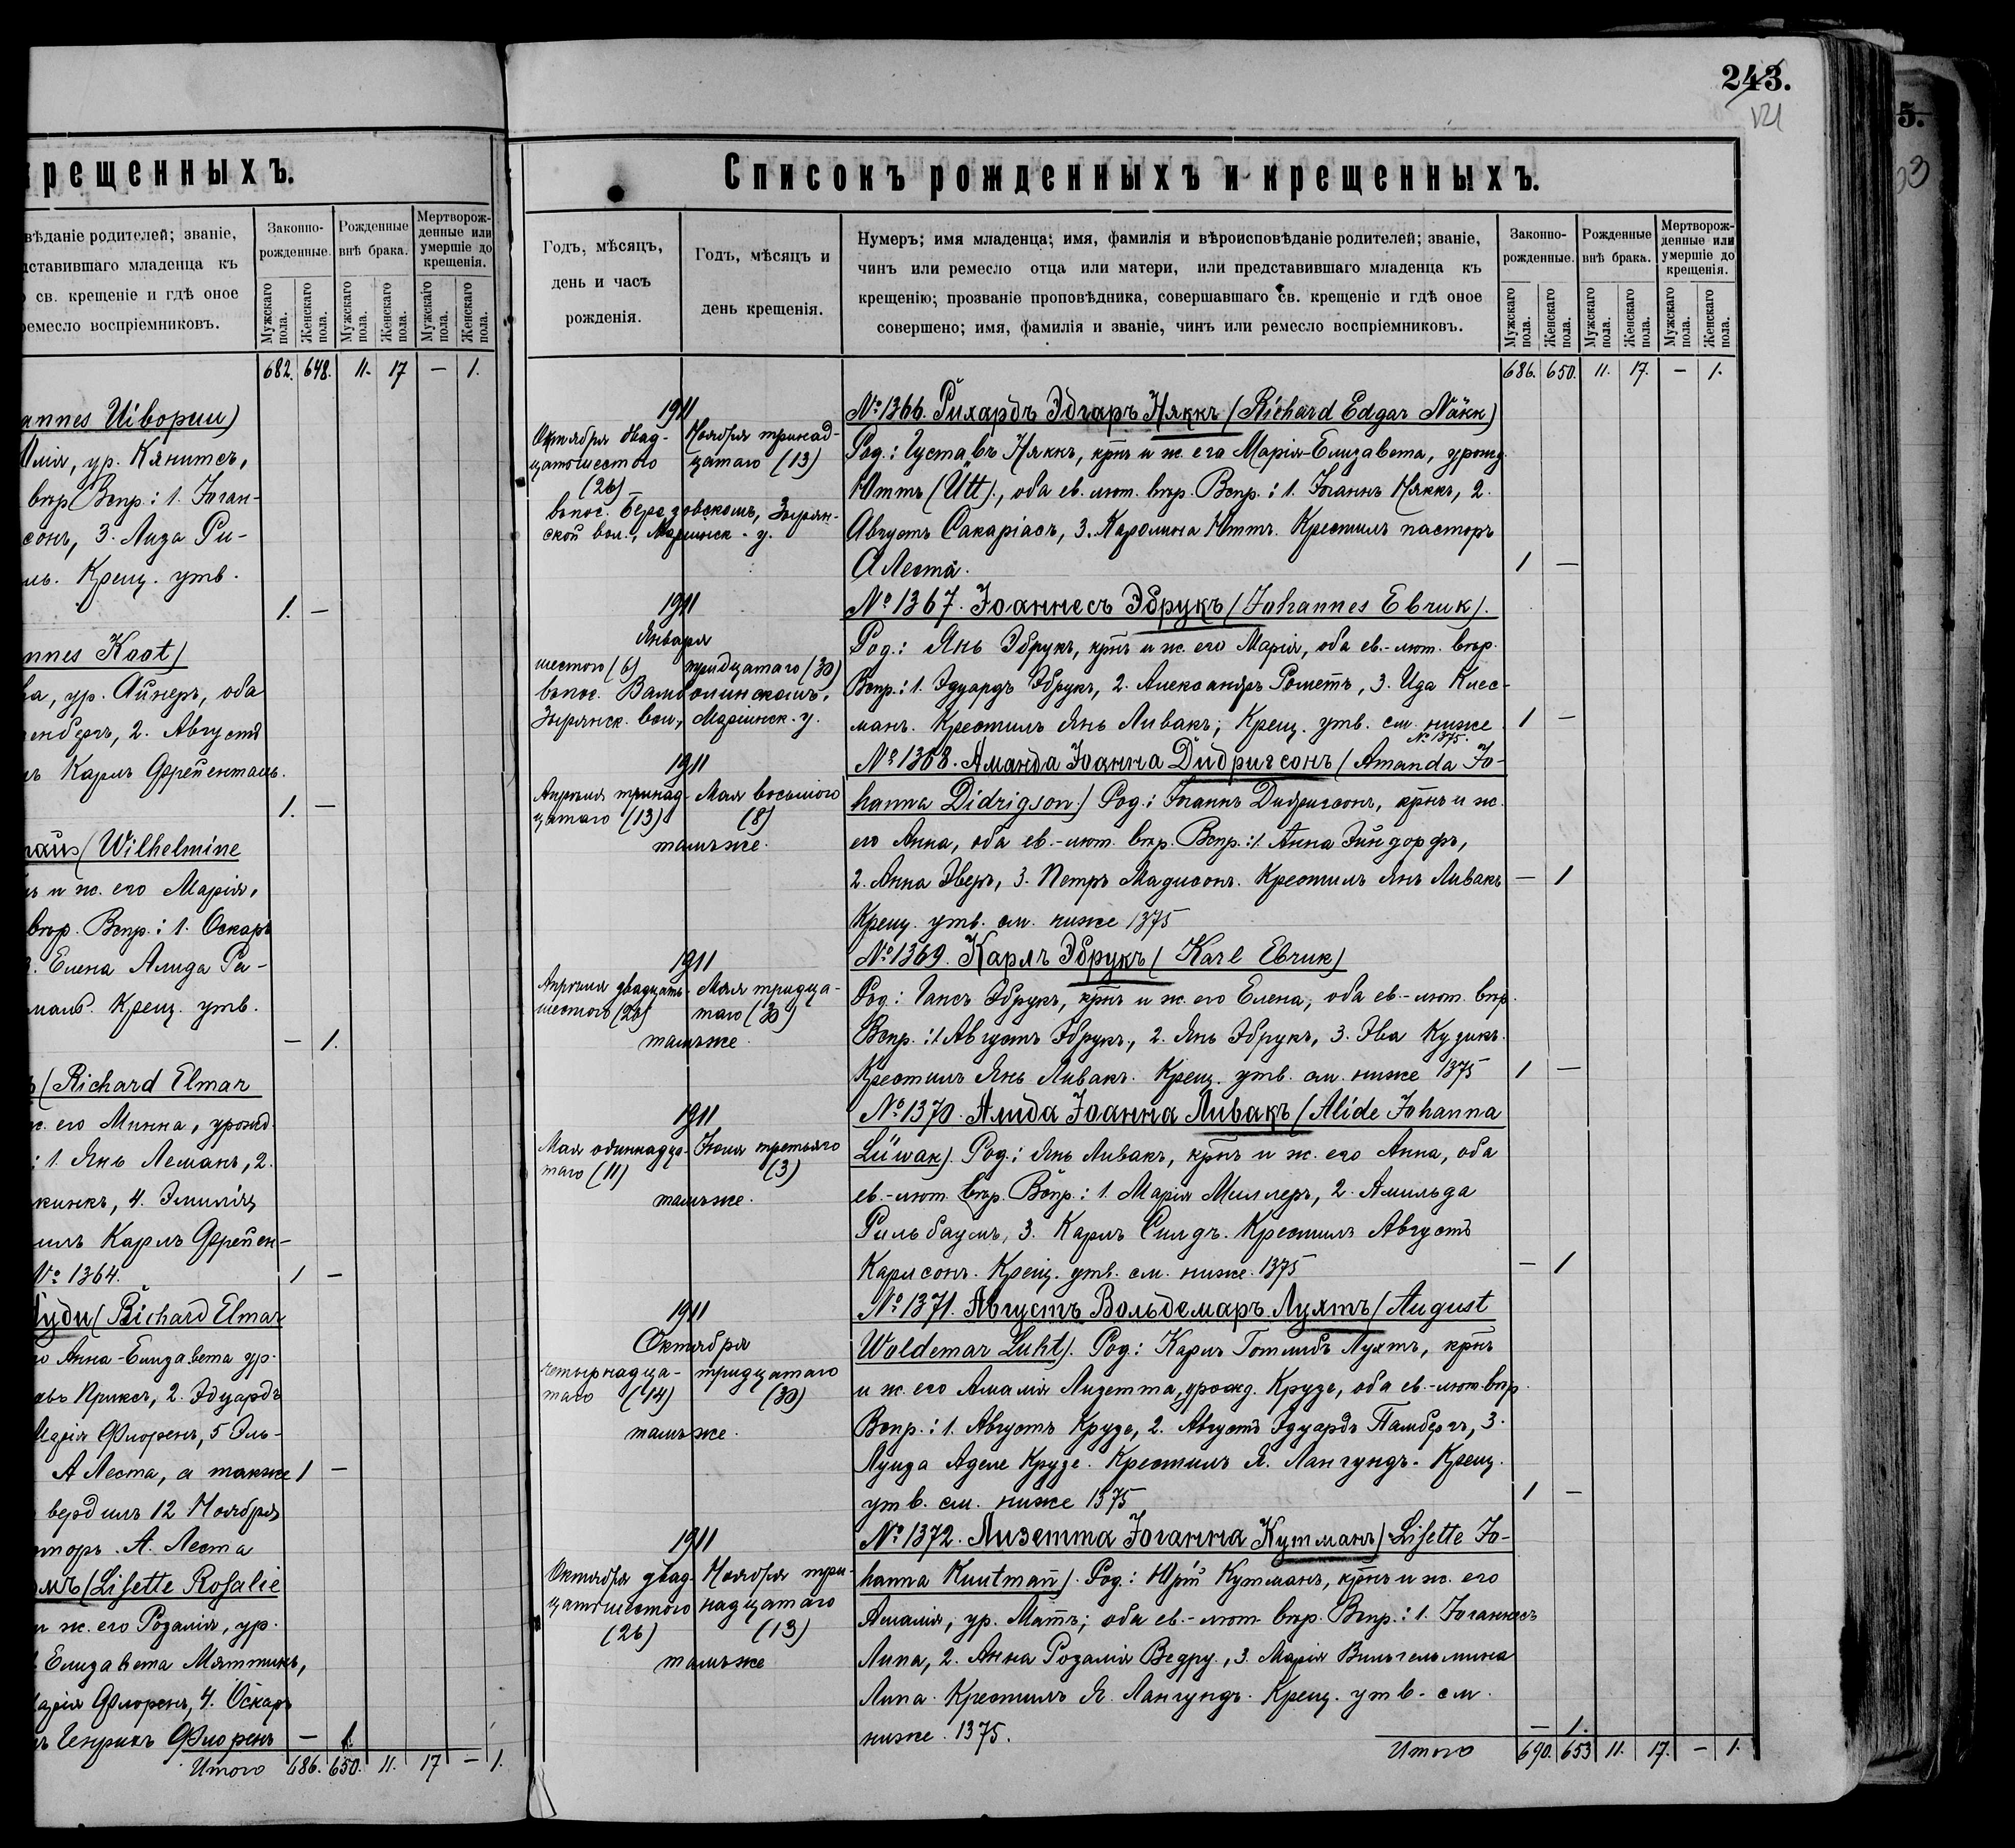 крещенныхъ.
вѣданіе родителей; званіе,
дставившаго младенца къ
св. крещеніе и гдѣ оное
ремесло воспріемниковъ.
Законно-рожденные.
Рожденные внѣ брака.
Мертворож-денные или умершіе до крещенія.
Мужскаго пола.
Женскаго пола.
Мужскаго пола.
Женскаго пола.
Мужскаго пола.
Женскаго пола.
682. 648. 11. 17 — 1.
annes Uiвopuu)
лія, ур. Кянитсъ,
вѣр. Вспр.: 1. Іоган-
сонъ, 3. Лиза Ри-
ль. Крещ. утв.
1. —
nnes Kaat)
ва, ур. Айнеръ, оба
енбергъ, 2. Августъ
ъ Карлъ Фрейенталь.
1. —
(Wilhelmine
ъ и ж. его Марія,
вѣр. Вспр.: 1. Оскаръ
3. Елена Алида Ра-
маль. Крещ. утв.
— 1.
(Richard Elmar
ж. его Минна, урожд.
: 1. Янъ Леманъ, 2.
кинкъ, 4. Эмилія
илъ Карлъ Фрейен-
№ 1364. 1 —
уди (Richard Elmar
го Анна-Елизавета ур.
авъ Приксъ, 2. Эдуардъ
Марія Флоренъ, 5 Эль-
А Леста, а также 1 —
вердилъ 12 Ноября
торъ А. Леста
(Lisette Rosalie
и ж. его Розалія, ур.
Елизавета Мяттикъ,
Марія Флоренъ, 4. Оскаръ
ъ Генрихъ Флоренъ — 1.
Итого 686. 650. 11. 17 — 1.
243.
121
Списокъ рожденныхъ и крещенныхъ.
Годъ, мѣсяцъ,
день и часъ
рожденія.
Годъ, мѣсяцъ и
день крещенія.
Нумеръ; имя младенца; имя, фамилія и вѣроисповѣданіе родителей; званіе,
чинъ или ремесло отца или матери, или представившаго младенца къ
крещенію; прозваніе проповѣдника, совершавшаго св. крещеніе и гдѣ оное
совершено; имя, фамилія и званіе, чинъ или ремесло воспріемниковъ.
Законно-рожденные.
Рожденные внѣ брака.
Мертворож-денные или умершіе до крещенія.
Мужскаго пола.
Женскаго пола.
Мужскаго пола.
Женскаго пола.
Мужскаго пола.
Женскаго пола.
686. 650. 11. 17. — 1.
1911
Октября двад-
цатошестого
(26)
Ноября тринад-
цатаго (13)
въ пос. Березовскомъ, Зырян-
ской вол., Маріинск. у.
№ 1366. Рихардъ Эдгаръ Няккъ (Richard Edgar Näkk)
Род.: Густавъ Няккъ, крнъ и ж. его Марія-Елизавета, урожд.
Юттъ (Ütt)., оба ев. лют. вѣр. Вспр.: 1. Іоганъ Няккъ, 2.
Августъ Сакаріасъ, 3. Каролина Юттъ. Крестилъ пасторъ
А Леста. 1 —
1911
Января
шестого (6) тридцатаго (30)
въ пос. Вамболинскомъ,
Зырянск. вол., Маріинск. у.
№ 1367. Іоаннесъ Эбрукъ (Johannes Ebruk).
Род.: Янъ Эбрукъ, крнъ и ж. его Марія, оба ев.-лют. вѣр.
Вспр.: 1. Эдуардъ Эбрукъ, 2. Александръ Рометъ, 3. Ида Клес-
манъ. Крестилъ Янъ Ливакъ; Крещ. утв. см. ниже 1 —
№ 1375.
1911
Апрѣля тринад-
цатаго (13)
Мая восьмого
(8)
тамъ же.
№ 1368. Аманда Іоанна Дидригсонъ (Amanda Jo-
hanna Didrigson.) Род.: Іоганъ Дидригсонъ, крнъ и ж.
его Анна, оба ев.-лют. вѣр. Вспр.: 1. Анна Эйндорфъ,
2. Анна Эверъ, 3. Петръ Мадисонъ. Крестилъ Янъ Ливакъ — 1
Крещ. утв. см. ниже 1375
1911
Апрѣля двадцать-
шестого (26)
Мая тридца-
таго (30)
тамъ же.
№ 1369. Карлъ Эбрукъ (Karl Ebruk)
Род.: Гансъ Эбрукъ, крнъ и ж. его Елена, оба ев.-лют. вѣр.
Вспр.: 1 Августъ Эбрукъ, 2. Янъ Эбрукъ, 3. Эва Кузикъ.
Крестилъ Янъ Ливакъ. Крещ. утв. см. ниже 1375 1 —
1911
Мая одиннадца-
таго (11)
Іюля третьяго
(3)
тамъ же.
№ 1370. Алида Іоанна Ливакъ (Alide Johanna
Liiwak). Род.: Янъ Ливакъ, крнъ и ж. его Анна, оба
ев.-лют. вѣр. Вспр.: 1. Марія Миллеръ, 2. Амильда
Рильбаумъ, 3. Карлъ Силдъ. Крестилъ Августъ
Карлсонъ. Крещ. утв. см. ниже. 1375 — 1
1911
Октября
четырнадца-
таго (14)
тридцатаго
(30)
тамъ же.
№ 1371. Августъ Вольдемаръ Лухтъ (August
Woldemar Luht). Род.: Карлъ Готлибъ Лухтъ, крнъ
и ж. его Амалія Лизетта, урожд. Крузе, оба ев.-лют. вѣр.
Вспр.: 1. Августъ Крузе, 2. Августъ Эдуардъ Памбергъ, 3.
Луиза Аделе Крузе. Крестилъ Я. Лангундъ. Крещ.
утв. см. ниже 1375 1 —
1911
Октября двад-
цатошестого
(26)
Ноября три-
надцатаго
(13)
тамъ же
№ 1372. Лизетта Іоганна Кутманъ (Lisette Jo-
hanna Kuutmañ). Род.: Юрій Кутманъ, крнъ и ж. его
Амалія, ур. Матъ; оба ев.-лют. вѣр. Вспр.: 1. Іоганнесъ
Липа, 2. Анна Розалія Ведру., 3. Марія Вильгельмина
Липа. Крестилъ Я. Лангундъ. Крещ. утв. см.
ниже. 1375. — 1.
Итого 690. 653 11. 17. — 1.
5.